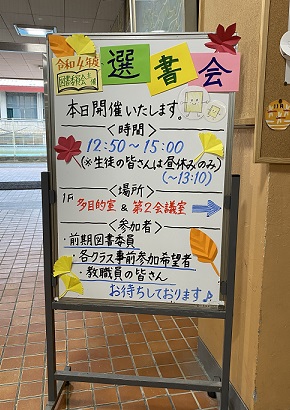 令和4年度
図書委員会主催
選書会
本日開催いたします。
＜時間＞
12:50～15:00
(※生徒の皆さんは昼休みのみ)
(～13:10)
＜場所＞
1F 多目的室 & 第2会議室 →
＜参加者＞
・前期図書委員
・各クラス事前参加希望者
・教職員の皆さん
お待ちしております♪